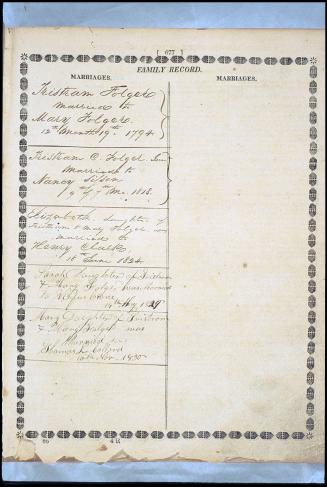 [ 677 ]
FAMILY RECORD.
MARRIAGES.
MARRIAGES.
Tristram Folger
married to
Mary Folger
12th Month 19th 1794
Tristram C. Folger
married to
Nancy
9th of 7th Mo. 1818
Elizabeth daughter of
Tristram & Mary Folger was
married to
Henry
18 1824
Sarah Daughter of Tristram
& Mary Folger was Married
to
14th 1829
Mary Daughter of Tristram
& Mary Folger was
Married to
10th Nov. 1830